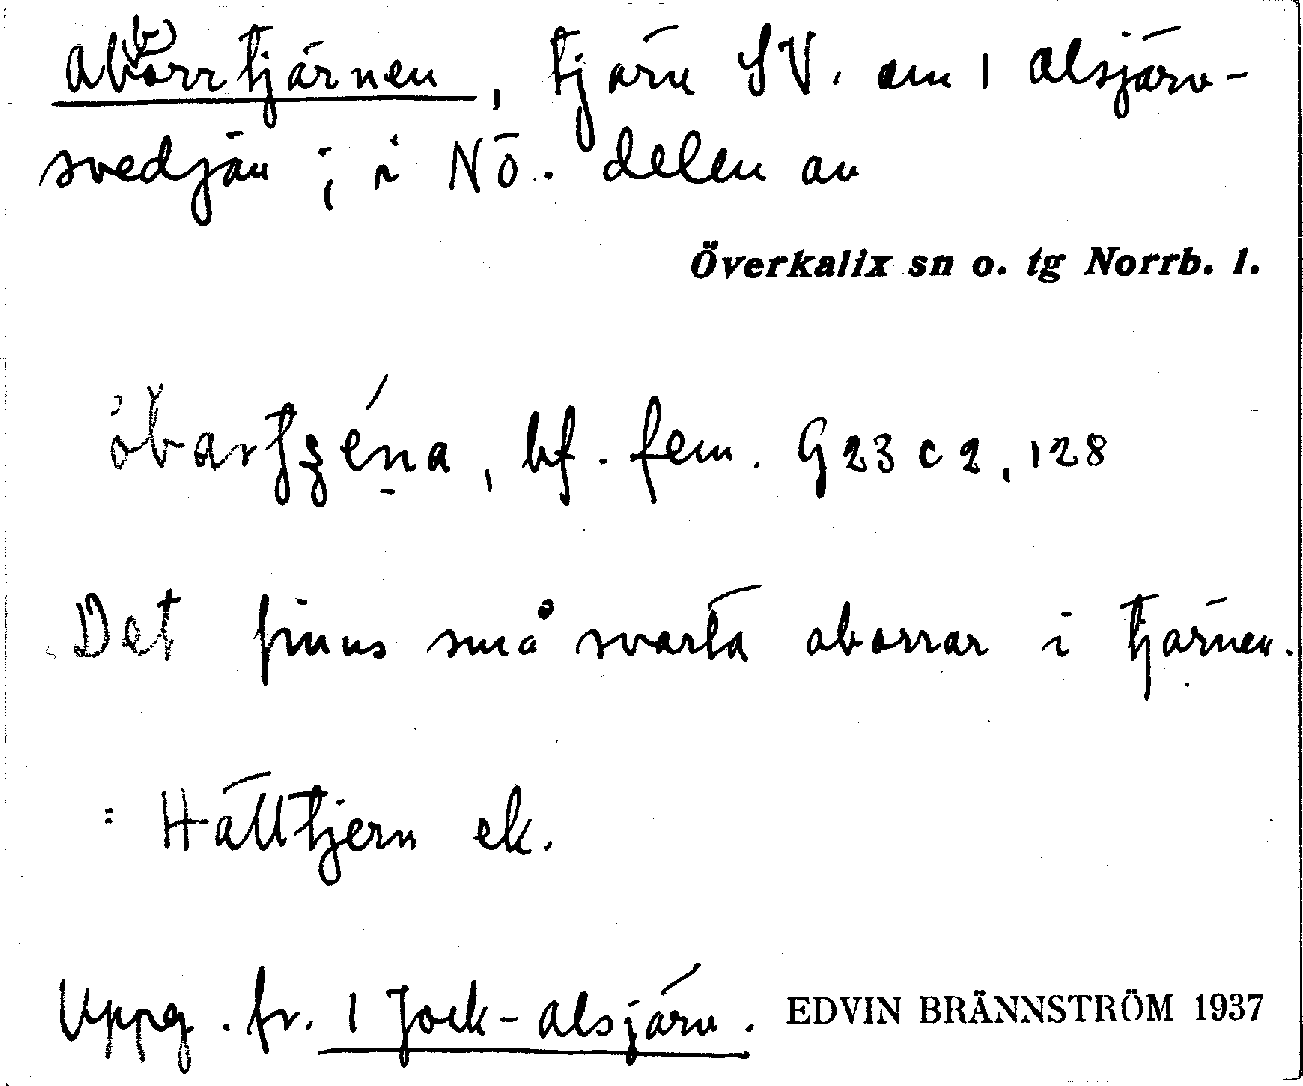 Ab(b)orrtjärnen, tjärn SV. om 1 Alsjärv-
svedjan ; i NÖ. delen av
Överkalix sn o. tg Norrb. l.
bf. fem. G 23 c 2, 128
Det finns små svarta aborrar i tjärnen.
= Hålltjern ek.
Uppg. fr. 1 Jock-Alsjärv. EDVIN BRÄNNSTRÖM 1937